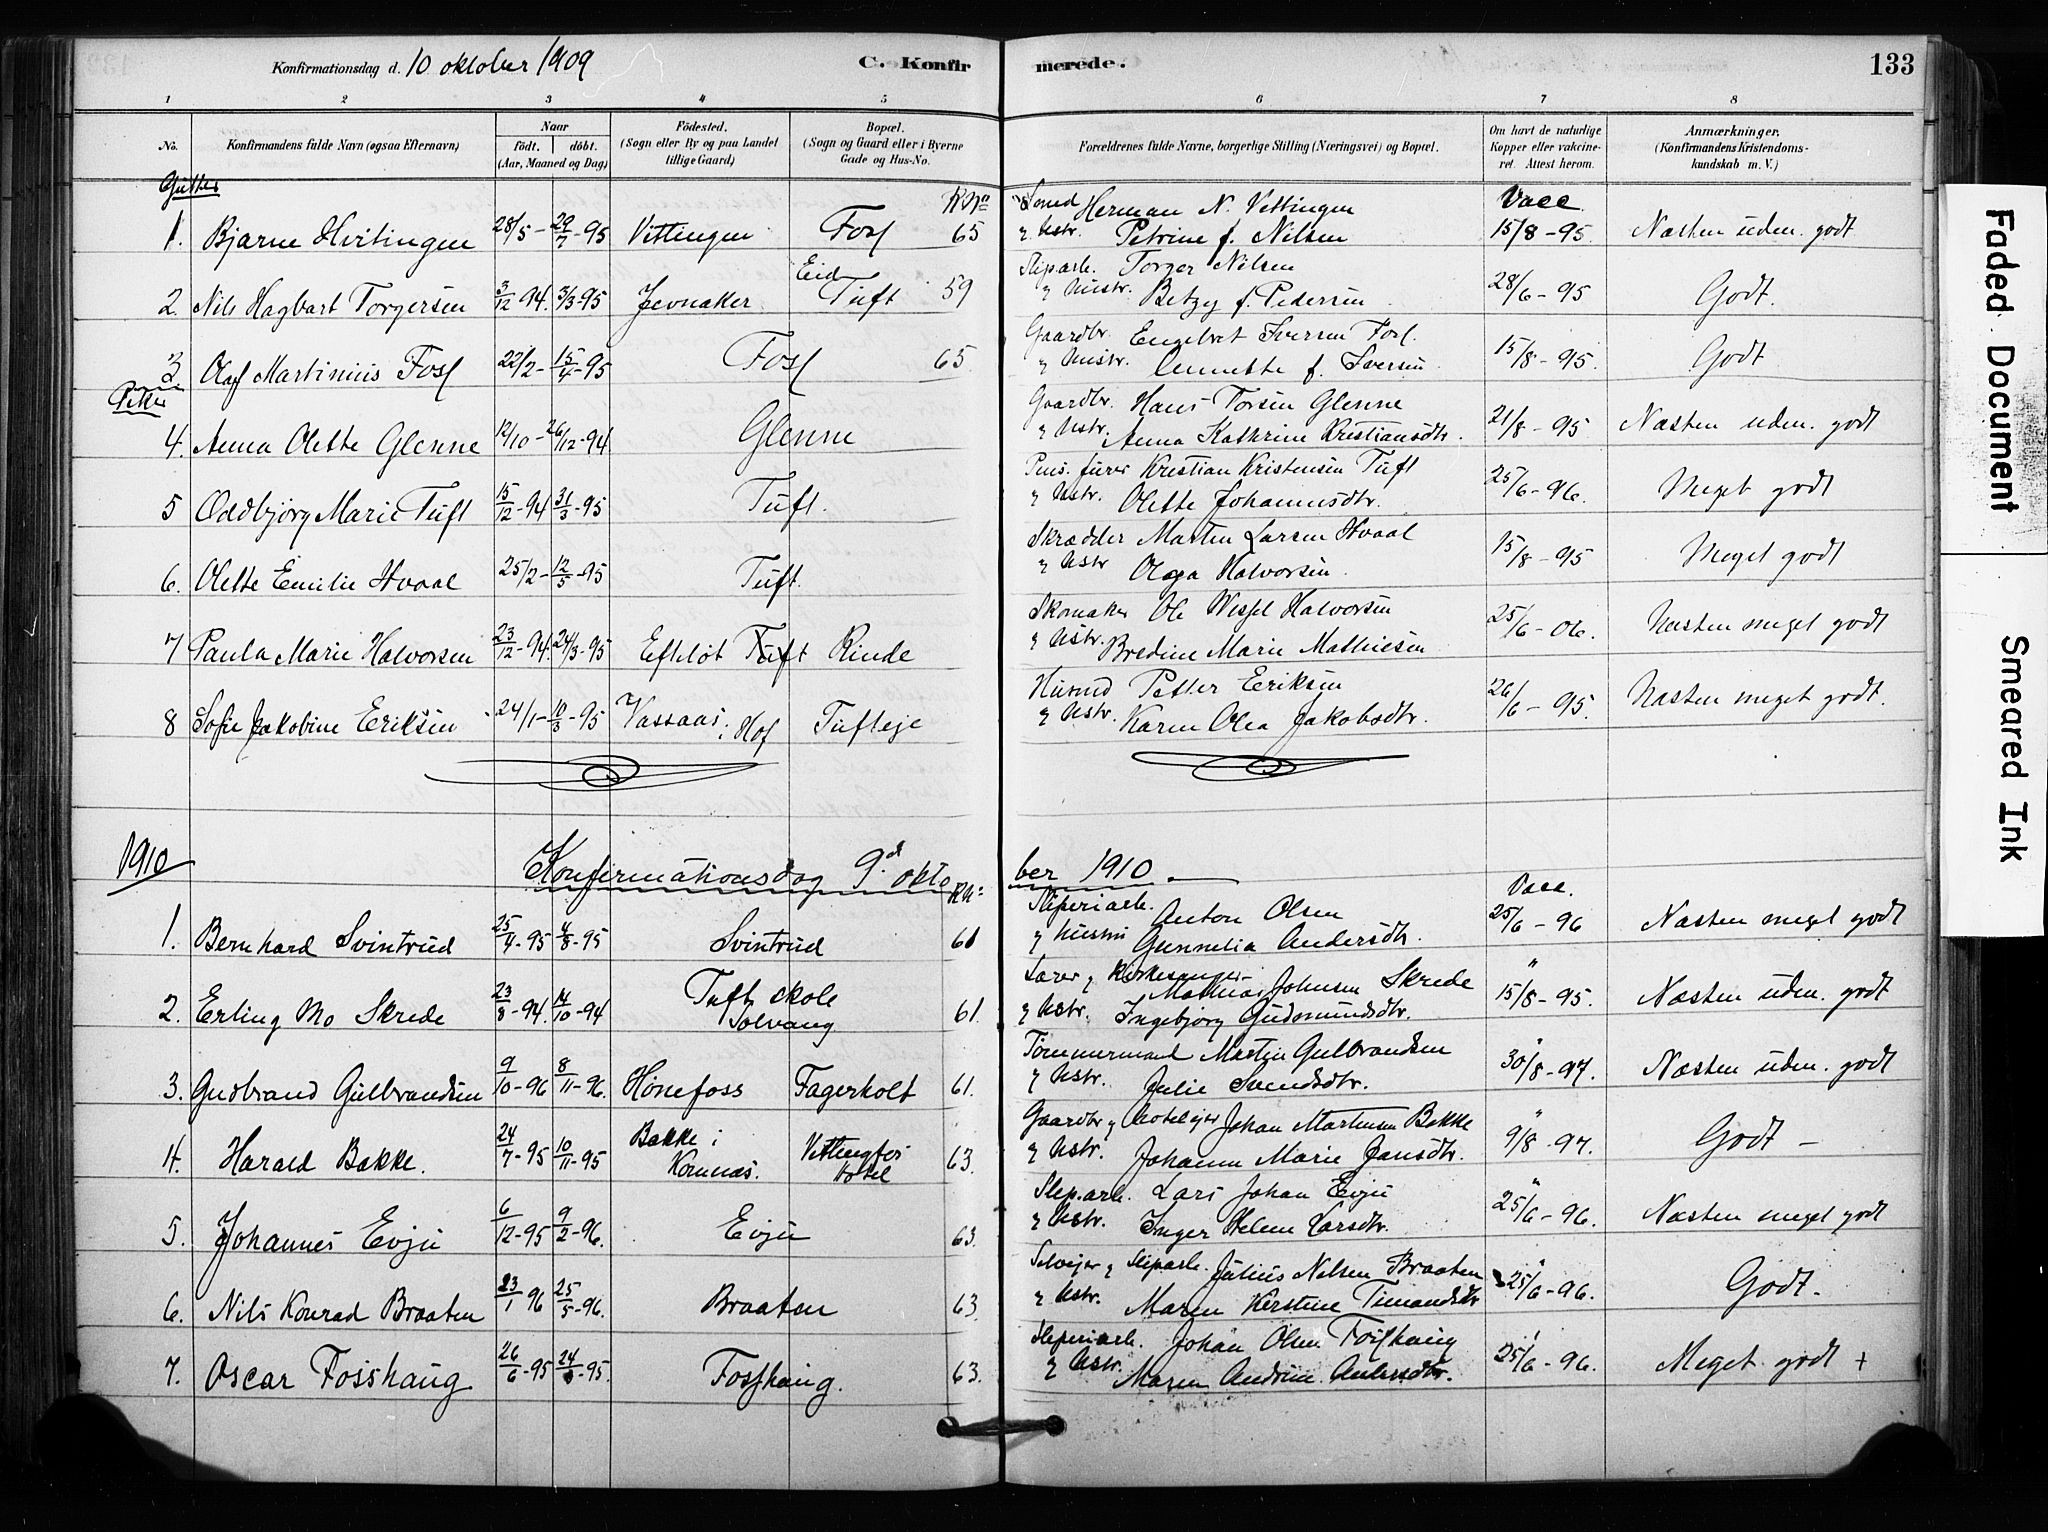 Konfirmationsdag d. 10 oktober 1909 C. Konfirmerede. 133
1 2 3 4 5 6 7 8
No. Konfirmandens fulde Navn (ogsaa Efternavn) Naar födt. döbt. (Aar, Maaned og Dag) Födested. (Sogn eller By og paa Landet tillige Gaard) Bopæl. (Sogn og Gaard eller i Byerne Gade og Hus-No. Forældrenes fulde Navne, borgerlige Stilling (Næringsvei) og Bopæl. Om havt de naturlige Kopper eller vakcineret. Attest herom. Anmærkninger. (Konfirmandens Kristendomskundskab m. V.)
Gutter Vacc.
1. Bjarne Hvitingen 28/5 - 29/7 - 95 Vittingen Foss 65 Smed Herman N. Vittingen 15/8 - 95 Næsten uden. godt
& Hstr. Petrine f. Nilsen
2. Nils Hagbart Torgersen 3/12 - 94. 3/3 - 95 Jevnaker Eid Tuft 59 Sliparb. Torger Nilsen 28/6 - 95 Godt.
& Hustr. Betzy f. Pedersen
3 Olaf Martinius Foss 22/2 - 15/4 - 95 Foss 65 Gaardbr. Engebret Iversen Foss. 15/8 - 95 Godt
& Hustr. Annette f. Iversen
Piker
4. Anna Olette Glenne 12/10 - 26/12 - 94 Glenne Gaardbr. Hans Torsen Glenne 21/8 - 95 Næsten uden. godt
& Hstr. Anna Kathrine Kristiansdtr.
5 Oddbjörg Marie Tuft 15/12 - 94 31/3 - 95 Tuft. Kristian Kristensen Tuft 25/6 - 96. Meget godt
& Hstr. Olette Johannesdtr.
6. Olette Emilie Hvaal 25/2 - 12/5 - 95 Tuft. Skrædder Martin Larsen Hvaal 15/8 - 95 Meget godt
& Hstr Olga Halvorsen
7 Paula Marie Halvorsen 23/12 - 94. 24/3 - 95 Efteløt Tuft Rinde Skomaker Ole Wessel Halvorsen 25/6 - 06. Næsten meget godt
& Hstr. Bredine Marie Mathiesen
8 Sofie Jakobine Eriksen 24/1 - 10/3 - 95 Vassaas i Hof Tufteje Husmd Petter Eriksen 26/6 - 95. Næsten meget godt.
& Hstr. Karen Olea Jakobsdtr.
1910 Konfirmationsdag 9.d oktober 1910. Vacc.
1. Bernhard Svintrud 25/4 - 95 4/8 - 95 Svintrud 61 Sliperiarb. Anton Olsen 25/6 - 96 Næsten meget godt
& Hustru Gunnelia Andersdtr.
2. Erling Mo Skrede 23/8 - 94. 14/10 - 94 Tuft skole Solvang 61. Lærer & Kirkesanger Mathias Johnsen Skrede " 15/8 - 95. Næsten uden. godt
& Hstr. Ingebjörg Gudmundsdtr.
3. Gudbrand Gulbrandsen 9/10 - 96 8/11 - 96. Hönefoss Fagerholt 61. Tömmermand Martin Gulbrandsen " 30/8 - 97. Næsten uden. godt
& Hstr. Julie Svendsdtr.
4. Harald Bakke. 24/7 - 95 10/11 - 95 Bakke i Komnes. Vittingfos Hotel 63. Gaardbr & hotelejer Johan Martinsen Bakke " 9/8 - 97. Godt -
& Hstr. Johanne Marie Jansdtr.
5. Johannes Evju 6/12 - 95 9/2 - 96. Evju 63. Slip.arb. Lars Johan Evju " 25/6 - 96. Næsten meget godt
& Hstr. Inger Helene Larsdtr.
6. Nils Konrad Braaten 23/1 96 25/5 - 96. Braaten 63. Selvejer & Sliparb. Julius Nilsen Braaten " 25/6 - 96. Godt.
& Hstr. Maren Kirstine Timandsdtr
7. Oscar Fosshaug 26/6 - 95 24/8 - 95. Fosshaug. 63. Sliperiarb. Johan Olsen Fosshaug 25/6 - 96. Meget godt +
& Hstr. Maren Andrine Andersdtr.
Faded Document
Smeared Ink